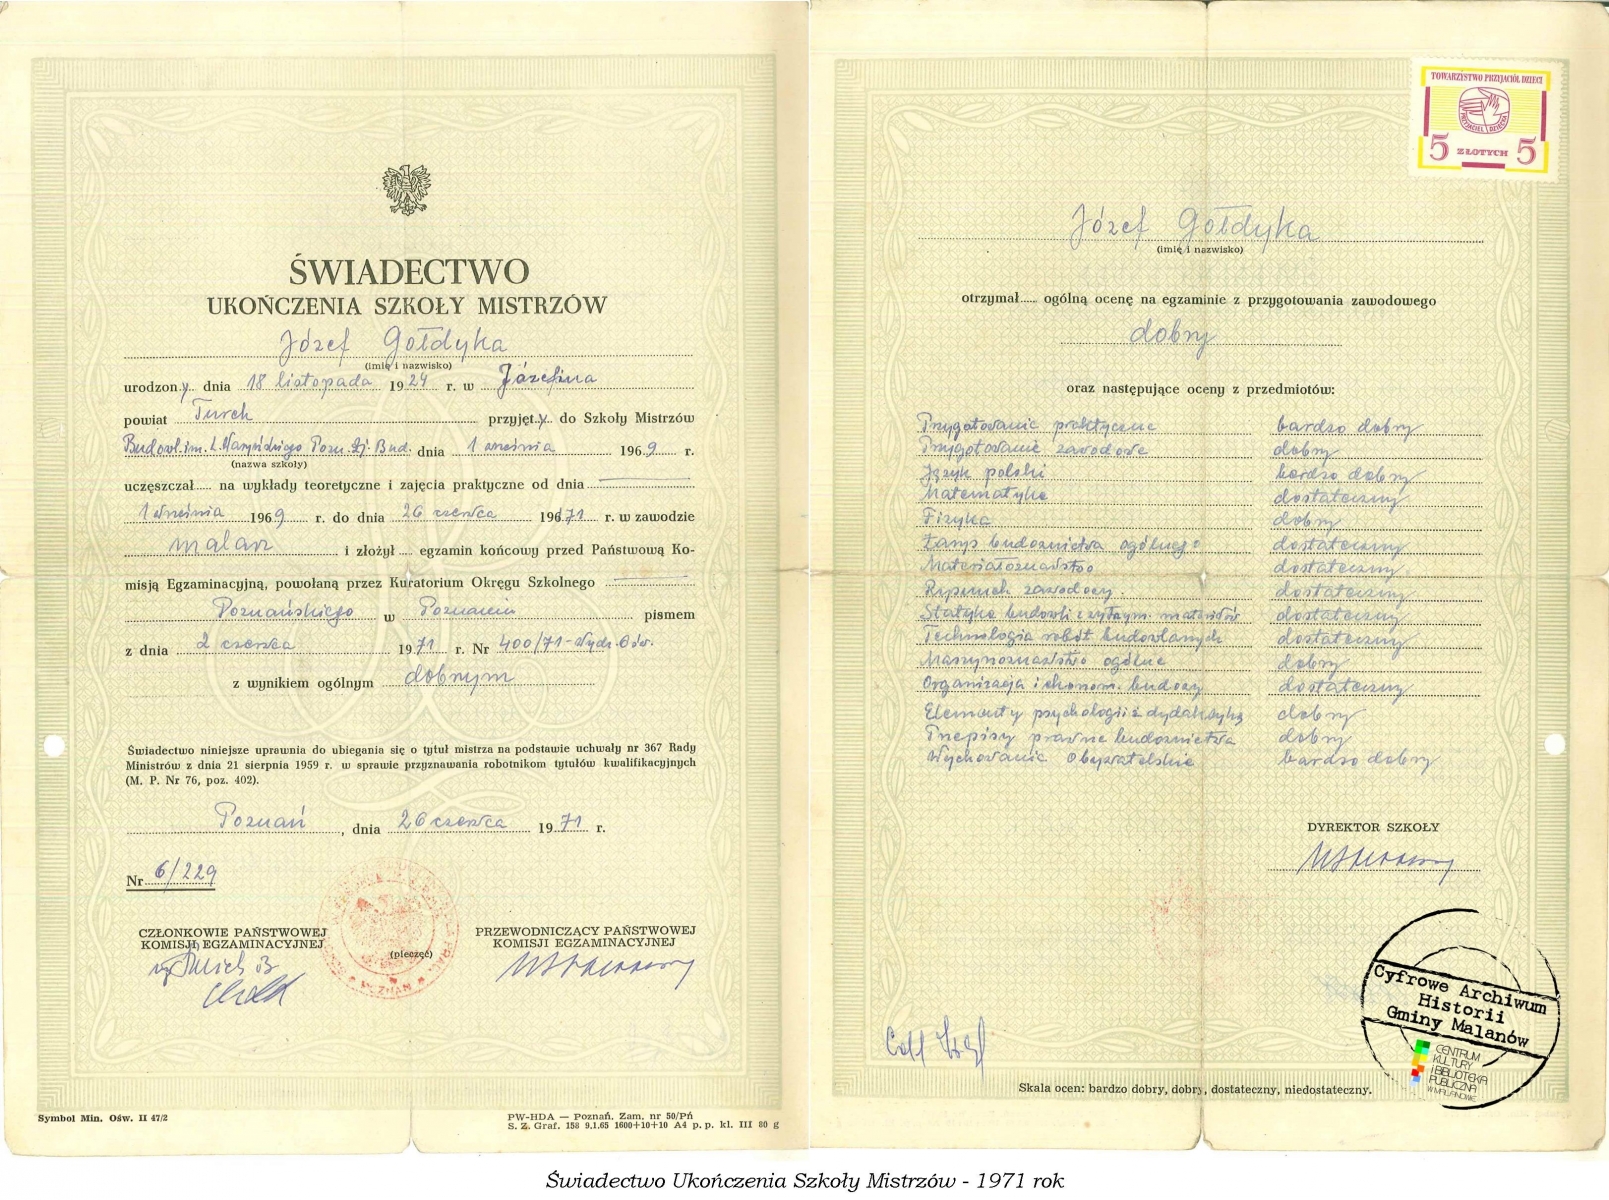 ŚWIADECTWO
UKOŃCZENIA SZKOŁY MISTRZÓW
Józef Gołdyka
(imię i nazwisko)
urodzony dnia 18 listopada 1924 r. w Józefina
powiat Turek przyjęty do Szkoły Mistrzów
Budowl. im. L. Waryńskiego Pozn. Zj. Bud. dnia 1 września 1969 r.
(nazwa szkoły)
uczęszczał..... na wykłady teoretyczne i zajęcia praktyczne od dnia
1 września 1969 r. do dnia 26 czerwca 1971 r. w zawodzie
malarz i złożył .... egzamin końcowy przed Państwową Ko-
misją Egzaminacyjną, powołaną przez Kuratorium Okręgu Szkolnego
Poznańskiego w Poznaniu pismem
z dnia 2 czerwca 1971 r. Nr 400/71
z wynikiem ogólnym dobrym
Świadectwo niniejsze uprawnia do ubiegania się o tytuł mistrza na podstawie uchwały nr 367 Rady
Ministrów z dnia 21 sierpnia 1959 r. w sprawie przyznawania robotnikom tytułów kwalifikacyjnych
(M. P. Nr 76, poz. 402).
Poznań, dnia 26 czerwca 1971 r.
Nr 6/229
CZŁONKOWIE PAŃSTWOWEJ
KOMISJI EGZAMINACYJNEJ
(pieczęć)
POZNAŃ
PRZEWODNICZĄCY PAŃSTWOWEJ
KOMISJI EGZAMINACYJNEJ
Symbol Min. Ośw. II 47/2
PW-HDA — Poznań, Zam. nr 50/Pń
S. Z. Graf. 158 9.1.65 1600+10+10 A4 p. p. kl. III 80 g
TOWARZYSTWO PRZYJACIÓŁ DZIECI
PRZYJACIEL DZIECKA
5 ZŁOTYCH 5
Józef Gołdyka
(imię i nazwisko)
otrzymał..... ogólną ocenę na egzaminie z przygotowania zawodowego
dobry
oraz następujące oceny z przedmiotów:
Przygotowanie praktyczne bardzo dobry
Przygotowanie zawodowe dobry
Język polski bardzo dobry
Matematyka dostateczny
Fizyka dobry
Zarys budownictwa ogólnego dostateczny
Materiałoznawstwo dostateczny
Rysunek zawodowy dostateczny
Statyka budowli z wytrzym. materiałów dostateczny
Technologia robót budowlanych dostateczny
Maszynoznawstwo ogólne dobry
Organizacja i ekonom. budowy dostateczny
Elementy psychologii z dydaktyką dobry
Przepisy prawne budownictwa dobry
Wychowanie Obywatelskie bardzo dobry
DYREKTOR SZKOŁY
Cyfrowe Archiwum
Historii
Gminy Malanów
CENTRUM
KULTURY
I BIBLIOTEKA
PUBLICZNA
W MALANOWIE
Skala ocen: bardzo dobry, dobry, dostateczny, niedostateczny.
Świadectwo Ukończenia Szkoły Mistrzów - 1971 rok